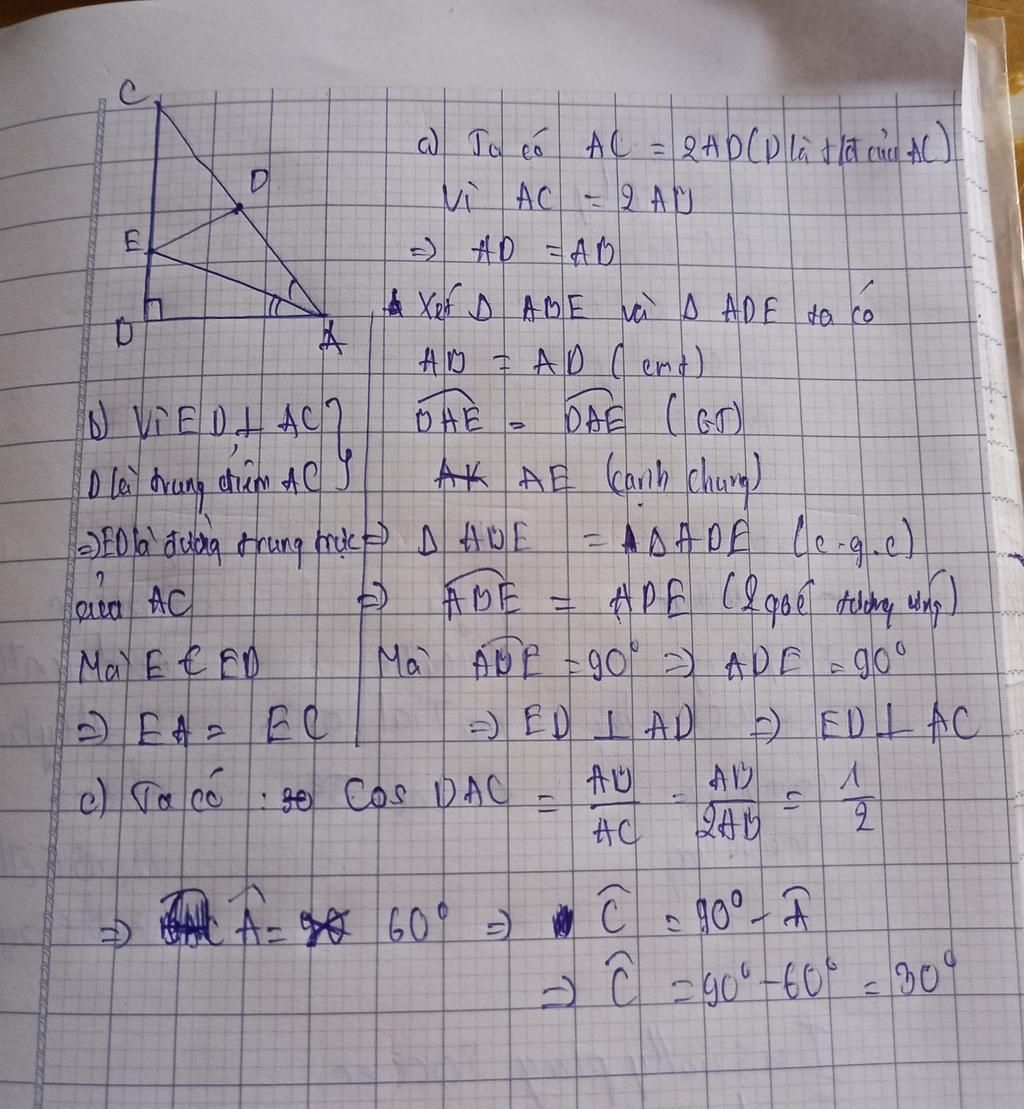 C
D
E
B
A
a) Ta có AC = 2AD (D là tđ của AC)
Vì AC = 2AB
=> AD = AB
Xét Δ ABE và Δ ADE ta có
AB = AD (cmt)
BAE = DAE (GT)
AE (cạnh chung)
=> Δ ABE = Δ ADE (c-g.c)
=> ABE = ADE (2 góc tương ứng)
Mà ABE = 90° => ADE = 90°
=> ED ⊥ AD => ED ⊥ AC
b) Vì ED ⊥ AC }
D là trung điểm AC }
=> ED là đường trung trực
của AC
Mà E ∈ ED
=> EA = EC
c) Ta có : Cos BAC = AB/AC = AB/2AB = 1/2
=> Â = 60° => Ĉ = 90° - Â
=> Ĉ = 90° - 60° = 30°